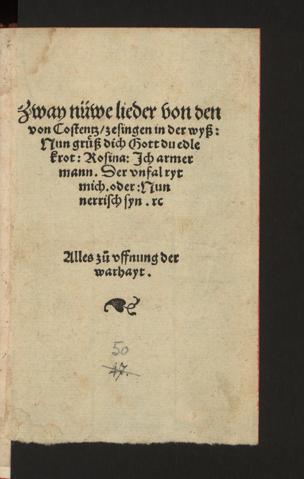 Zway nüwe lieder von den
von Costentz/zesingen in der wyß:
Nun grüß dich Gott du edle
krot: Rosina: Ich armer
mann. Der vnfal ryt
mich. oder: Nun
nerrisch syn. ꝛc
Alles zů vffnung der
warhayt.
50
17.